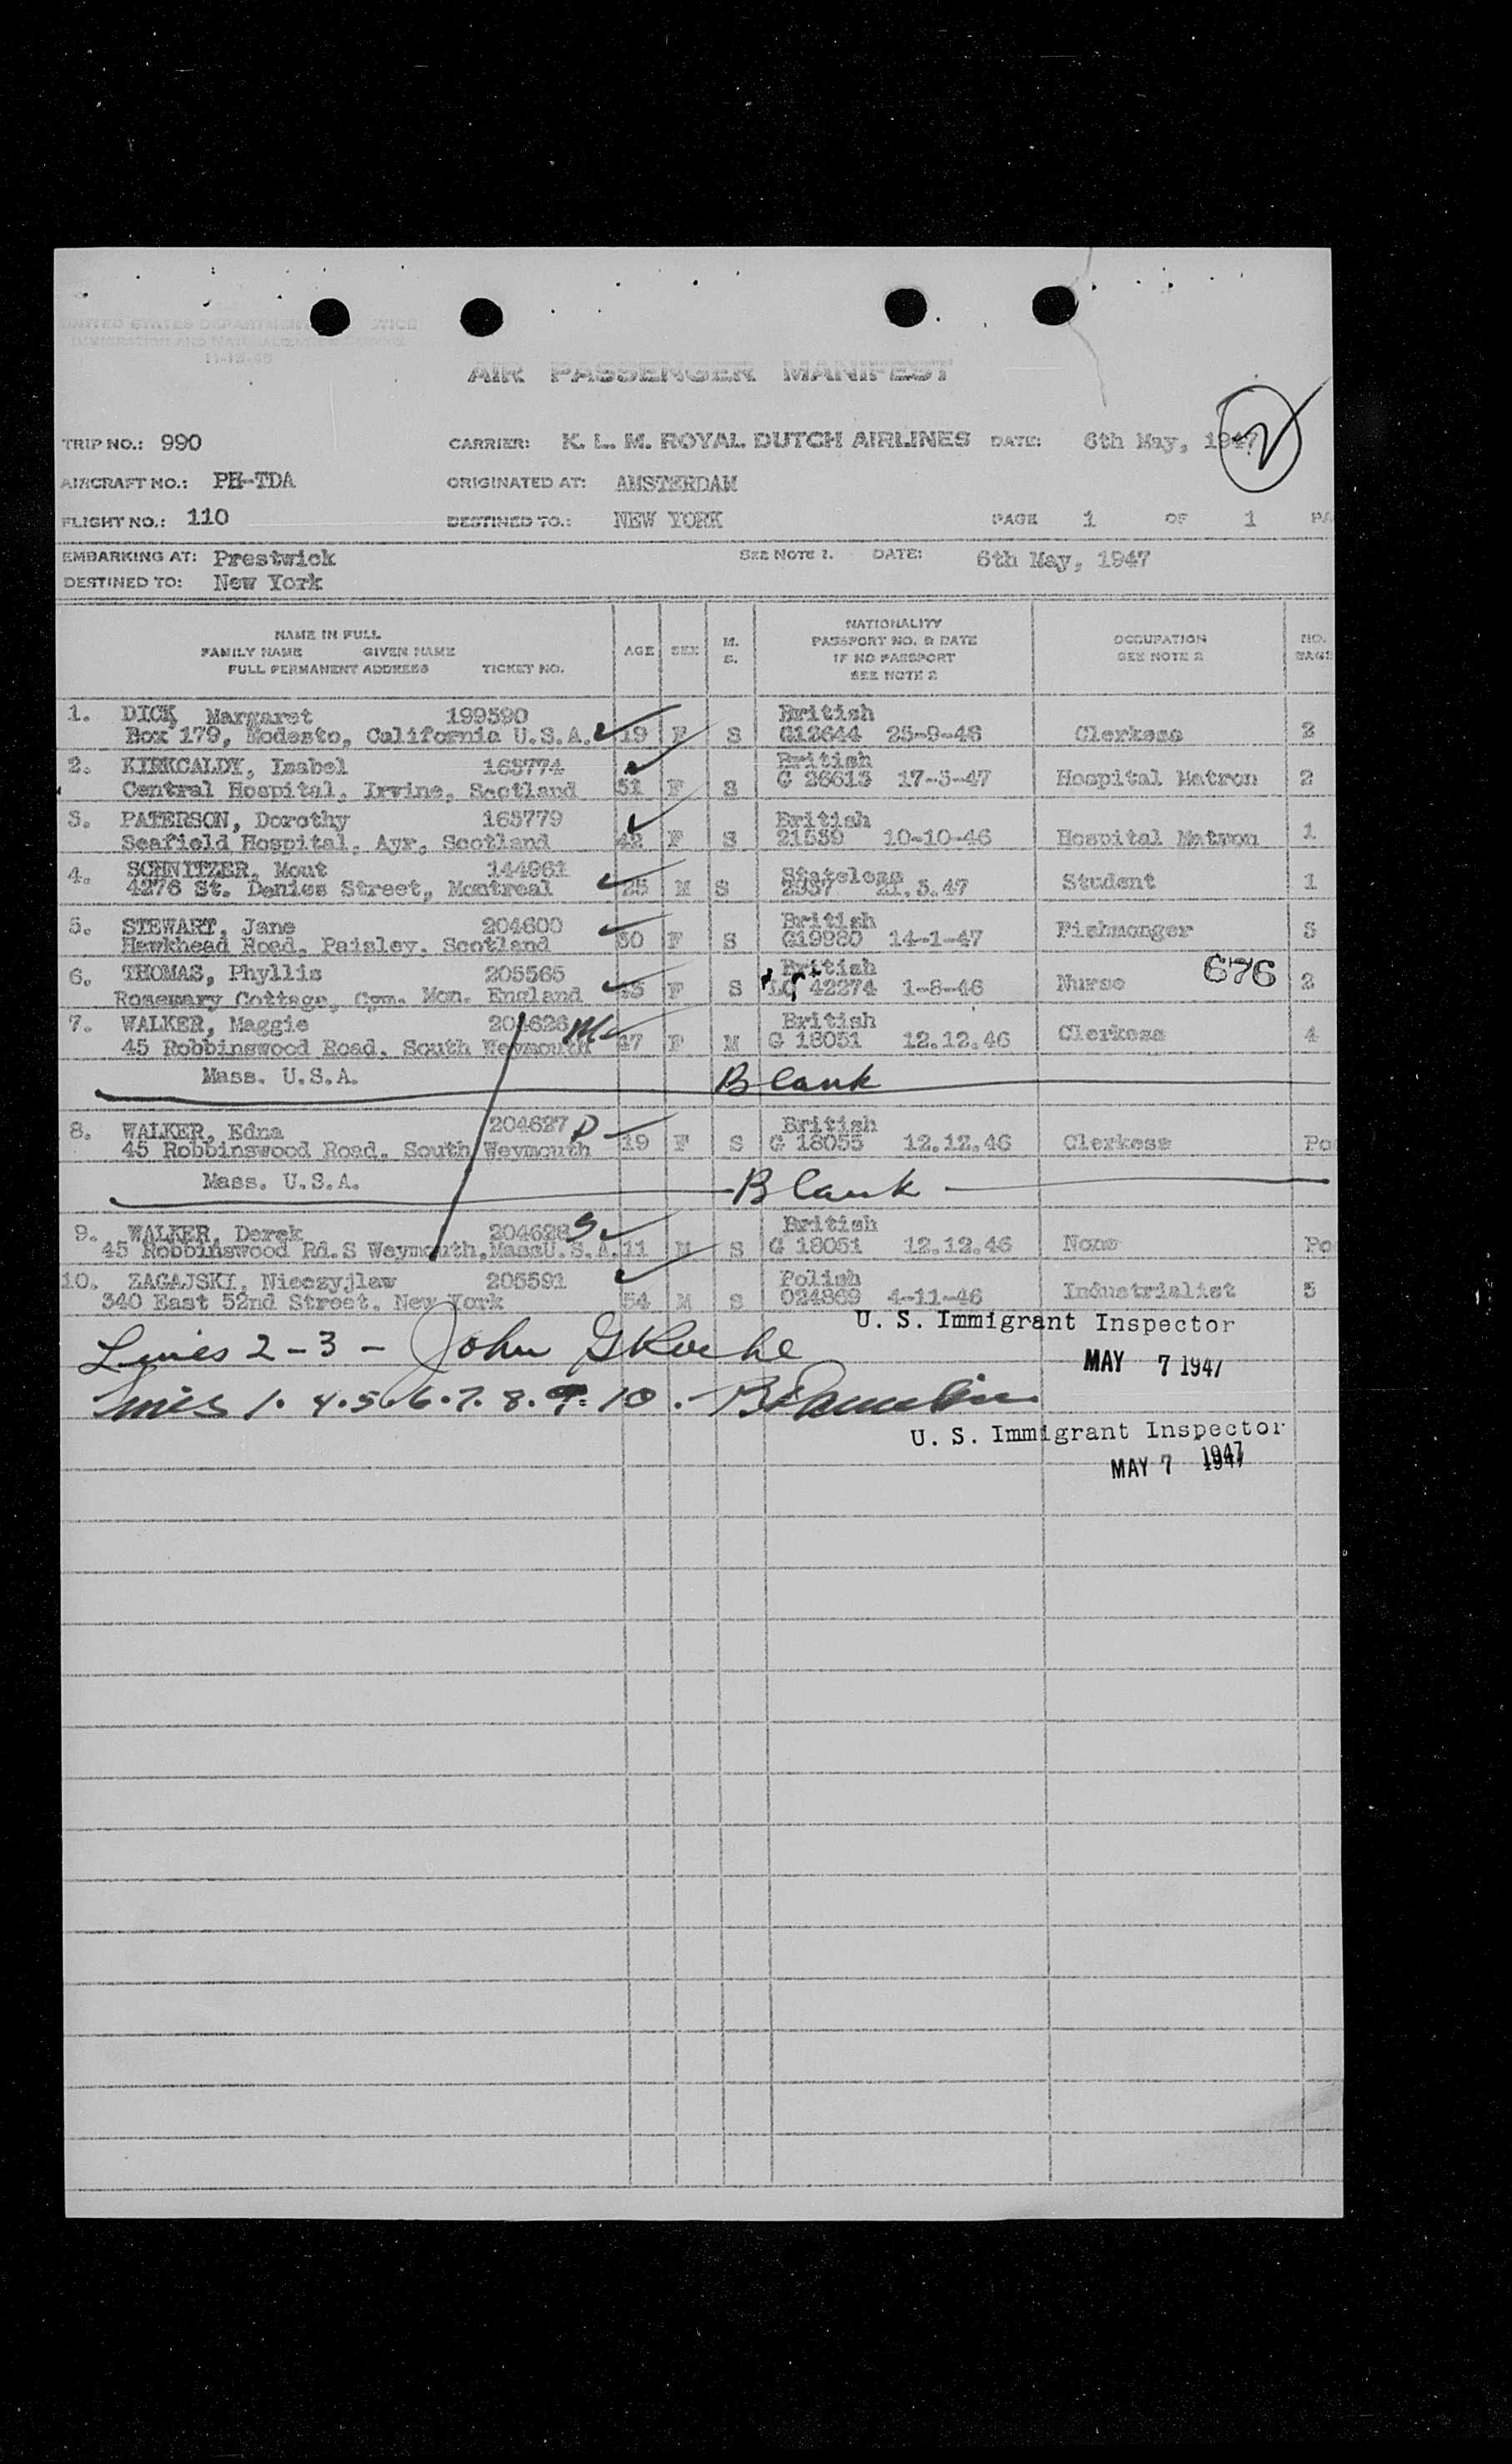 UNITED STATES DEPARTMENT STICE
IMMIGRATION AND NATURALIZATION SERVICE
11-15-45
AIR PASSENGER MANIFEST
2
TRIP NO.: 990 CARRIER: K. L. M. ROYAL DUTCH AIRLINES DATE: 6th May, 1947
AIRCRAFT NO.: PH-TDA ORIGINATED AT: AMSTERDAM
FLIGHT NO.: 110 DESTINED TO.: NEW YORK PAGE 1 OF 1 PA
EMBARKING AT: Prestwick SEE NOTE 1. DATE: 6th May, 1947
DESTINED TO: New York
NAME IN FULL
FAMILY NAME GIVEN NAME
FULL PERMANENT ADDRESS TICKET NO. AGE SEX M. S. NATIONALITY PASSPORT NO. & DATE IF NO PASSPORT SEE NOTE 2 OCCUPATION SEE NOTE 2 NO. BAGS
1. DICK Margaret 199590 British
Box 179, Modesto, California U.S.A. 19 F S G12644 25-9-46 Clerkess 2
2. KIRKCALDY, Isabel 165774 British
Central Hospital, Irvine, Scotland 51 F S G 26613 17-3-47 Hospital Matron 2
3. PATERSON, Dorothy 165779 British
Seafield Hospital, Ayr, Scotland 42 F S 21539 10-10-46 Hospital Matron 1
4. SCHNITZER, Mout 144961 Stateless
4276 St. Denies Street, Montreal 25 M S 2937 21.3.47 Student 1
5. STEWART, Jane 204600 British
Hawkhead Road, Paisley, Scotland 30 F S G19980 14-1-47 Fishmonger 3
6. THOMAS, Phyllis 205565 British 676
Rosemary Cottage, Cgm. Mon. England F S LG 42274 1-8-46 Nurse 2
7. WALKER, Maggie 204626 M British
45 Robbinswood Road, South Weymouth 47 F M G 18051 12.12.46 Clerkess 4
Mass. U.S.A. Blank
8. WALKER, Edna 204627 D British
45 Robbinswood Road, South Weymouth 19 F S G 18055 12.12.46 Clerkess Po
Mass. U.S.A. Blank
9. WALKER, Derek 204628 S British
45 Robbinswood Rd.S Weymouth, MassU.S.A. 11 M S G 18051 12.12.46 None Po
10. ZAGAJSKI, Nieczyjlaw 205591 Polish
340 East 52nd Street, New York 54 M S 024869 4-11-46 Industrialist 5
U. S. Immigrant Inspector
Lines 2 - 3 - John G Roche
MAY 7 1947
Lines 1. 4. 5. 6. 7. 8. 9. 10.
U. S. Immigrant Inspector
MAY 7 1947